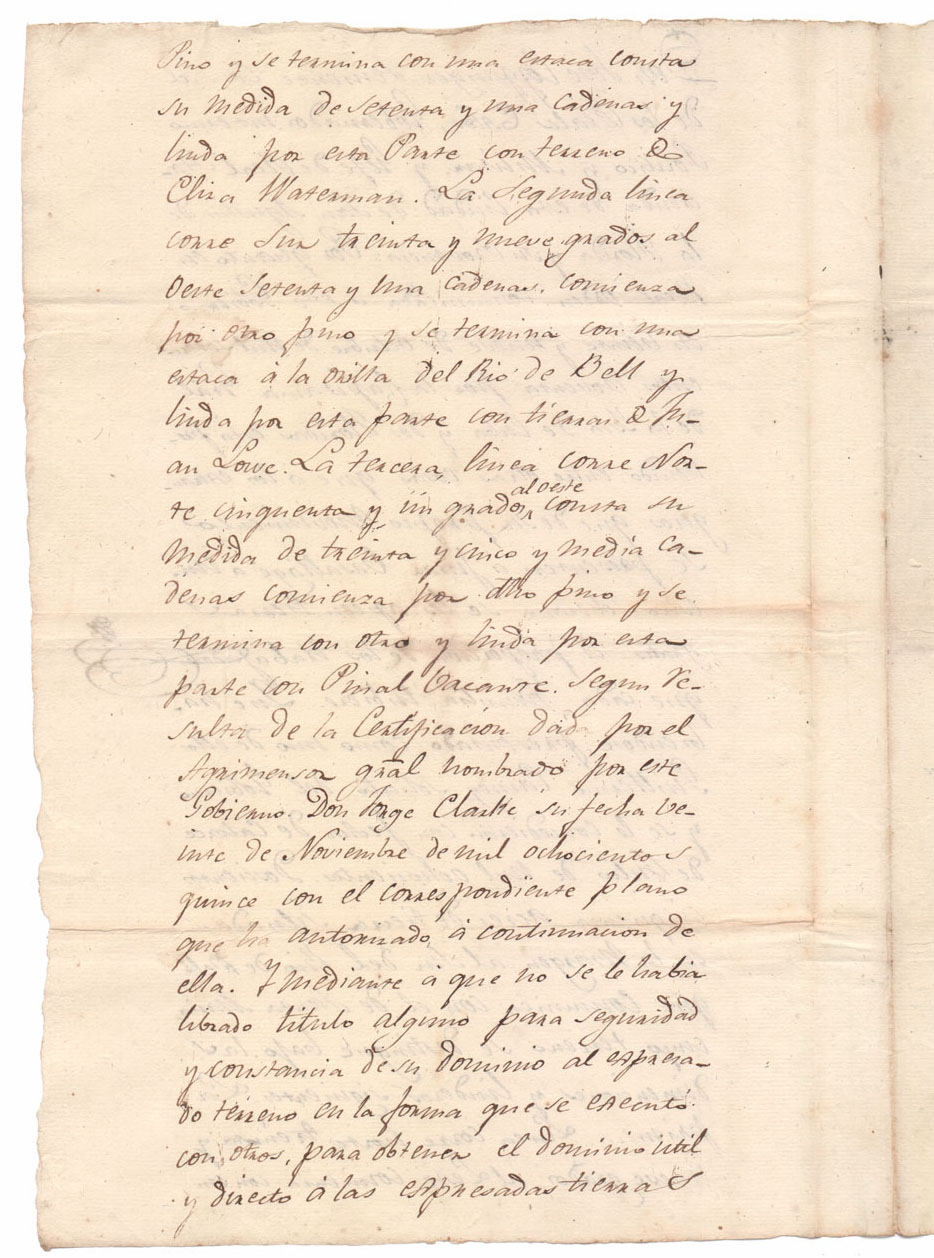 Pino y se termina con una estaca consta
su medida de setenta y una cadenas y
linda por esta Parte con terreno de
Eliza Waterman. La segunda linea
corre Sur treinta y nueve grados al
Oeste setenta y una cadenas, comienza
por otro pino y se termina con una
estaca á la orilla del Rio de Bell y
linda por esta parte con tierras de Ju-
an Lowe. La tercera linea corre Nor-
te cinquenta y un grados al oeste consta su
medida de treinta y cinco y media ca-
denas comienza por dho pino y se
termina con otro y linda por esta
parte con Pinal Vacante. Segun re-
sulta de la Certificacion dada por el
Agrimensor gral nombrado por este
Gobierno Don Jorge Clarke su fecha ve-
inte de Noviembre de mil ochocientos
quince con el correspondiente plano
que ha autorizado á continuacion de
ella. Y mediante á que no se le habia
librado titulo alguno para seguridad
y constancia de su dominio al expresa-
do terreno en la forma que se executó
con otros, para obtener el dominio util
y directo á las expresadas tierras